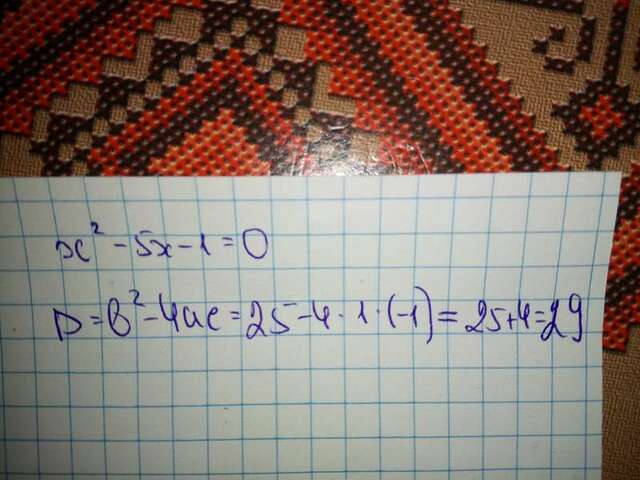 x² - 5x - 1 = 0
D = b² - 4ac = 25 - 4 · 1 · (-1) = 25 + 4 = 29